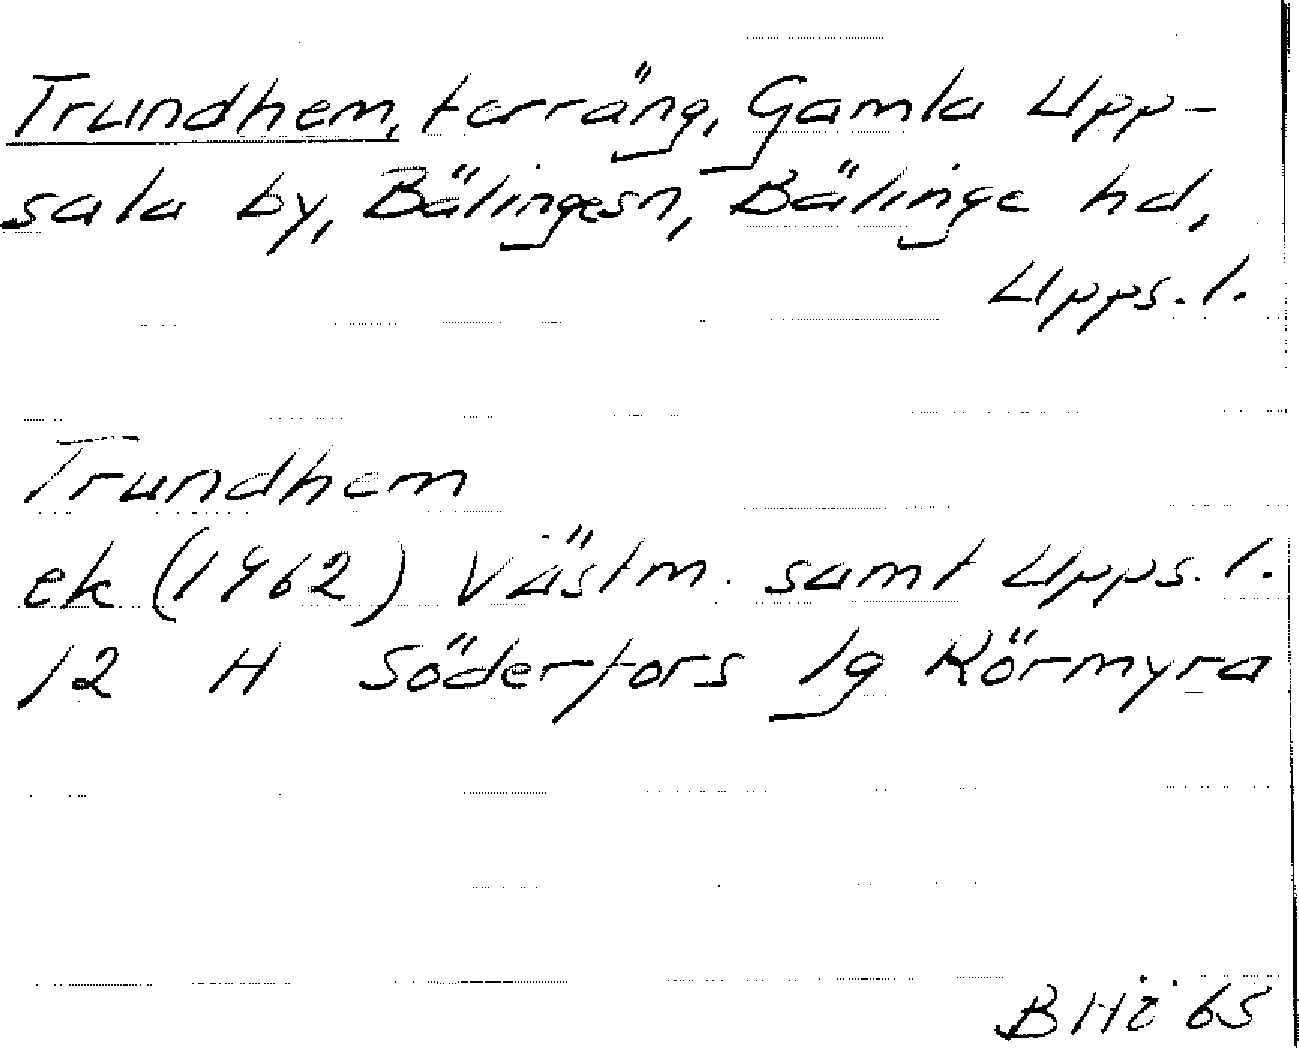 Trundhem, terräng, Gamla Upp-
sala by, Bälingesn, Bälinge hd,
Upps. l.
Trundhem
ek (1962) Västm. samt Upps. l.
12 H Söderfors 1g Körmyra
65